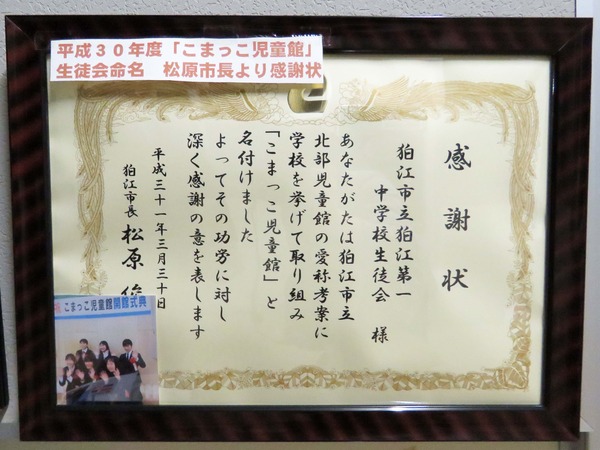 平成30年度「こまっこ児童館」
生徒会命名　松原市長より感謝状
感謝状
狛江市立狛江第一
中学校生徒会　様
あなたがたは狛江市立
北部児童館の愛称考案に
学校を挙げて取り組み
「こまっこ児童館」と
名付けました
よってその功労に対し
深く感謝の意を表します
平成三十一年三月三十日
狛江市長　松原俊
こまっこ児童館開館式典